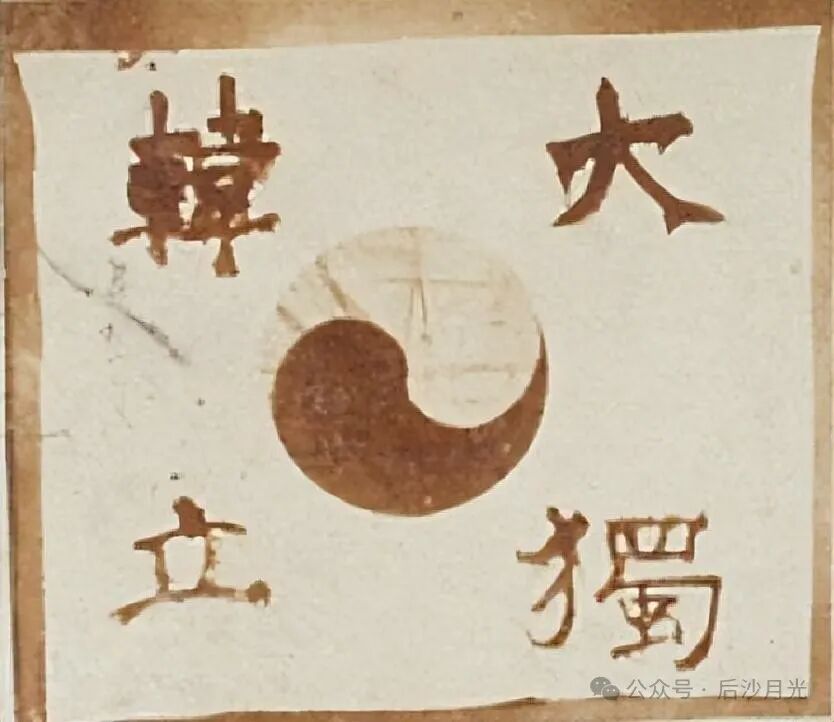 大韓
獨立
公众号·后沙月光